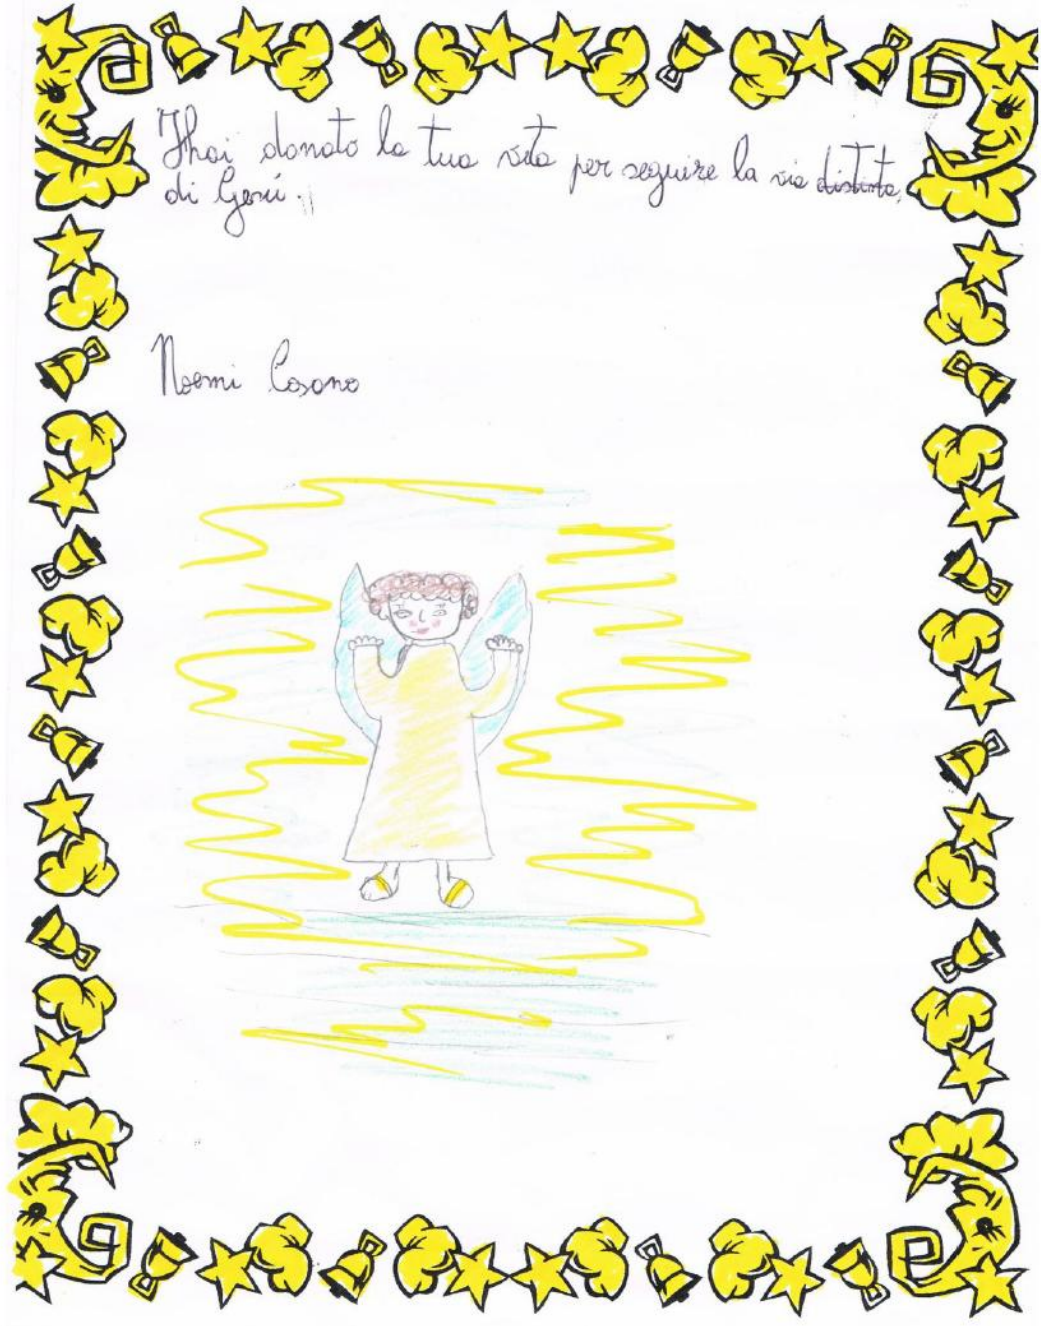 Hai donato la tua vita per seguire la via distinta
di Gesú.
Noemi Cosono